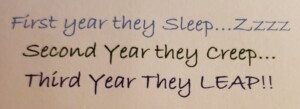 First year they Sleep...Zzzz
Second Year they Creep...
Third Year They LEAP!!